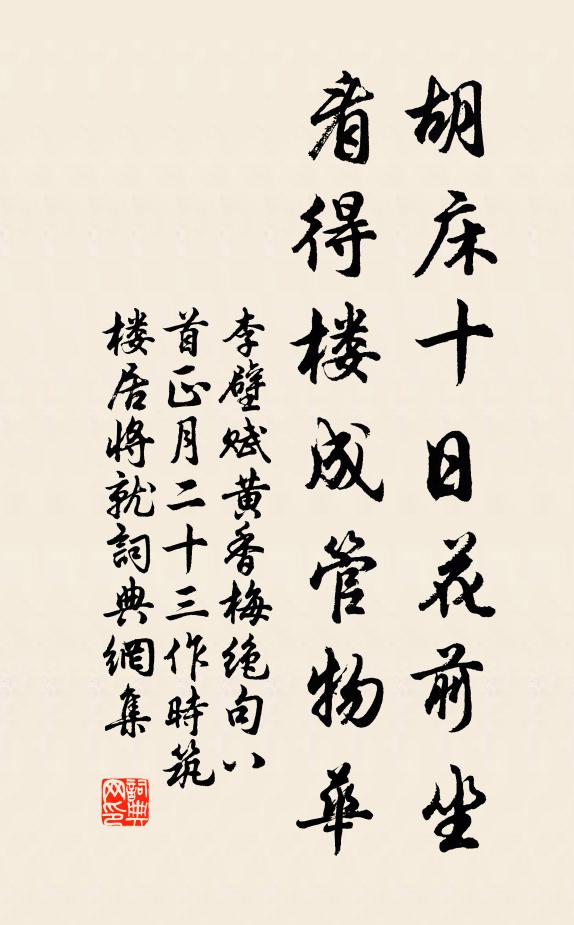 胡床十日花前坐
看得楼成管物华
李壁赋黄香梅绝句八
首正月二十三作時筑
楼居将就詞典網集
詞典
网印